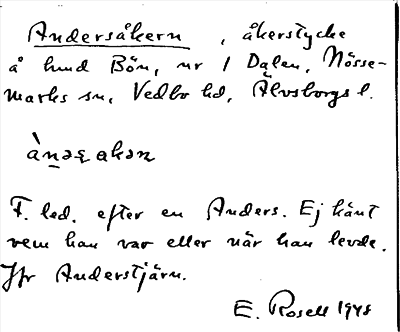 Andersåkern , åkerstycke
å hmd Bön, nr 1 Dalen, Nösse-
marks sn, Vedbo hd, Älvsborgs l.
F. led. efter en Anders. Ej känt
vem han var eller när han levde.
Jfr Anderstjärn.
E. Rosell 1948